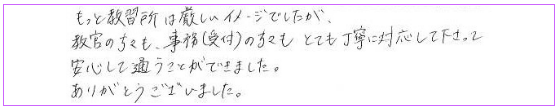 もっと教習所は厳しいイメージでしたが、
教官の方々も、事務(受付)の方々もとても丁寧に対応して下さって
安心して通うことができました。
ありがとうございました。